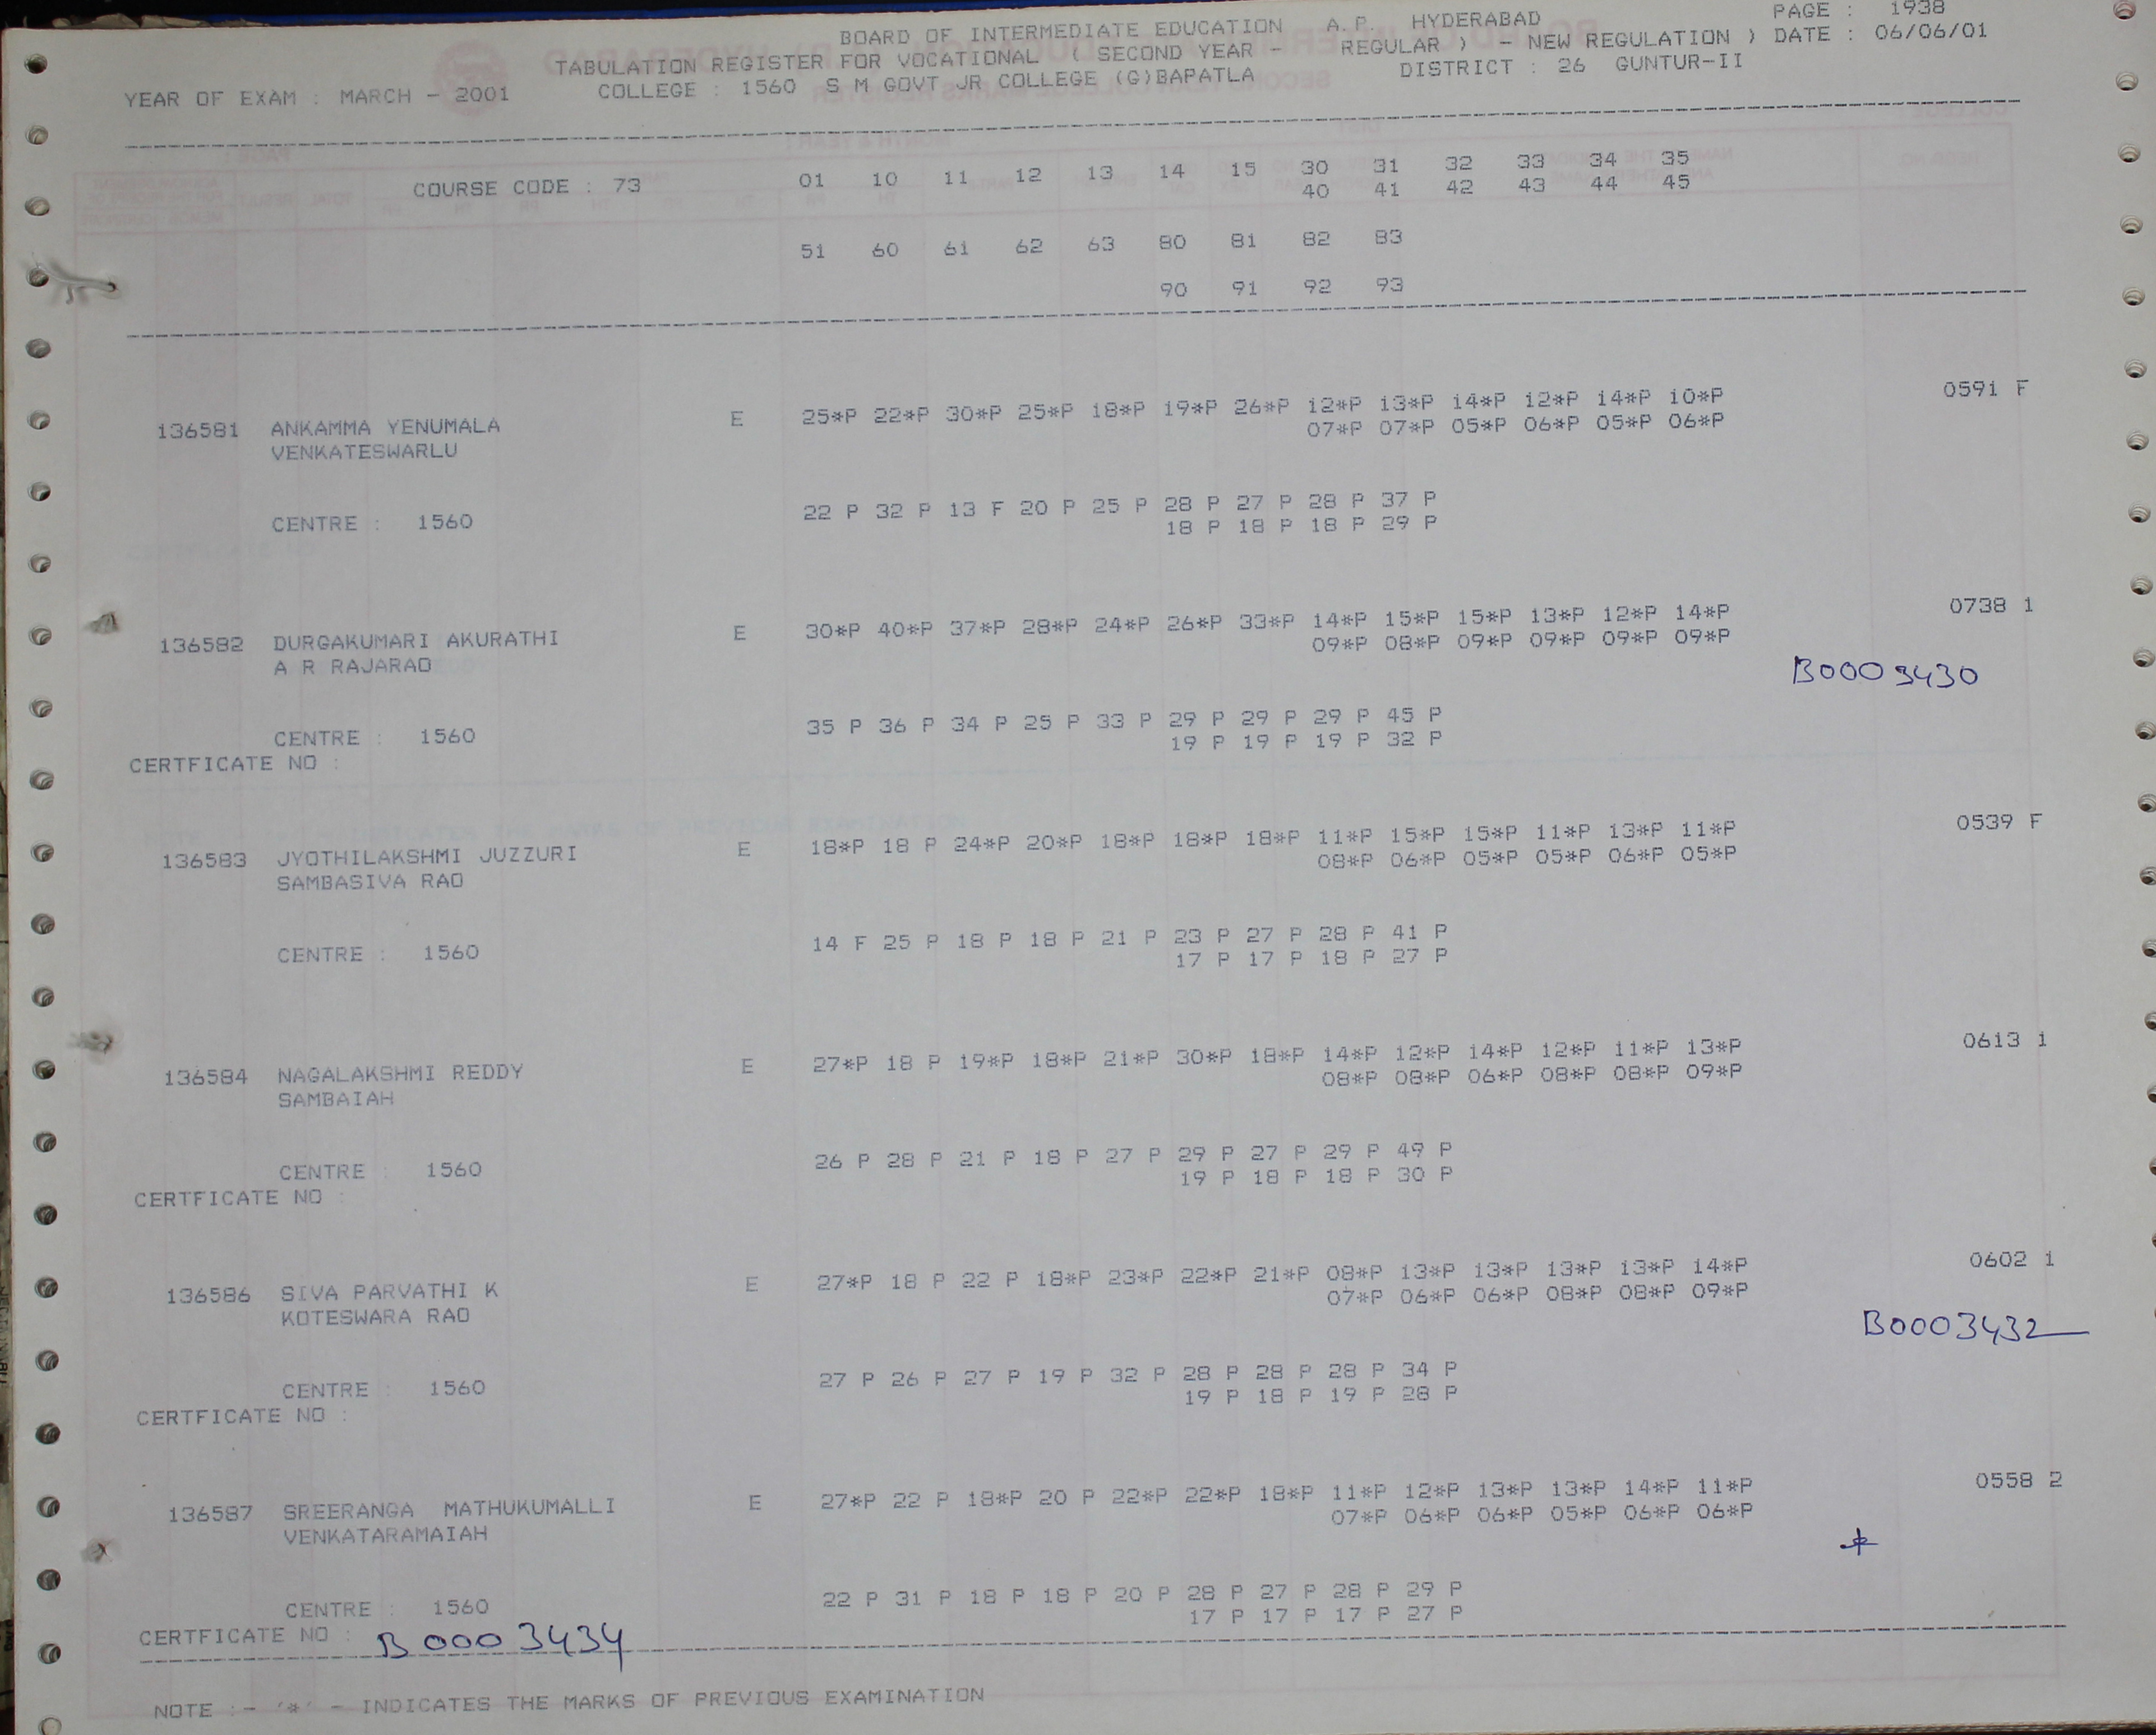 BOARD OF INTERMEDIATE EDUCATION A.P. HYDERABAD PAGE : 1938
TABULATION REGISTER FOR VOCATIONAL ( SECOND YEAR - REGULAR ) - NEW REGULATION ) DATE : 06/06/01
YEAR OF EXAM : MARCH - 2001 COLLEGE : 1560 S M GOVT JR COLLEGE (G)BAPATLA DISTRICT : 26 GUNTUR-II
COURSE CODE : 73 01 10 11 12 13 14 15 30 31 32 33 34 35
40 41 42 43 44 45
51 60 61 62 63 80 81 82 83
90 91 92 93
136581 ANKAMMA YENUMALA E 25*P 22*P 30*P 25*P 18*P 19*P 26*P 12*P 13*P 14*P 12*P 14*P 10*P 0591 F
VENKATESWARLU 07*P 07*P 05*P 06*P 05*P 06*P
CENTRE : 1560 22 P 32 P 13 F 20 P 25 P 28 P 27 P 28 P 37 P
18 P 18 P 18 P 29 P
136582 DURGAKUMARI AKURATHI E 30*P 40*P 37*P 28*P 24*P 26*P 33*P 14*P 15*P 15*P 13*P 12*P 14*P 0738 1
A R RAJARAO 09*P 08*P 09*P 09*P 09*P 09*P
B0003430
CENTRE : 1560 35 P 36 P 34 P 25 P 33 P 29 P 29 P 29 P 45 P
19 P 19 P 19 P 32 P
CERTFICATE NO :
136583 JYOTHILAKSHMI JUZZURI E 18*P 18 P 24*P 20*P 18*P 18*P 18*P 11*P 15*P 15*P 11*P 13*P 11*P 0539 F
SAMBASIVA RAO 08*P 06*P 05*P 05*P 06*P 05*P
CENTRE : 1560 14 F 25 P 18 P 18 P 21 P 23 P 27 P 28 P 41 P
17 P 17 P 18 P 27 P
136584 NAGALAKSHMI REDDY E 27*P 18 P 19*P 18*P 21*P 30*P 18*P 14*P 12*P 14*P 12*P 11*P 13*P 0613 1
SAMBAIAH 08*P 08*P 06*P 08*P 08*P 09*P
CENTRE : 1560 26 P 28 P 21 P 18 P 27 P 29 P 27 P 29 P 49 P
19 P 18 P 18 P 30 P
CERTFICATE NO :
136586 SIVA PARVATHI K E 27*P 18 P 22 P 18*P 23*P 22*P 21*P 08*P 13*P 13*P 13*P 13*P 14*P 0602 1
KOTESWARA RAO 07*P 06*P 06*P 08*P 08*P 09*P
B0003432
CENTRE : 1560 27 P 26 P 27 P 19 P 32 P 28 P 28 P 28 P 34 P
19 P 18 P 19 P 28 P
CERTFICATE NO :
136587 SREERANGA MATHUKUMALLI E 27*P 22 P 18*P 20 P 22*P 22*P 18*P 11*P 12*P 13*P 13*P 14*P 11*P 0558 2
VENKATARAMAIAH 07*P 06*P 06*P 05*P 06*P 06*P
CENTRE : 1560 22 P 31 P 18 P 18 P 20 P 28 P 27 P 28 P 29 P
17 P 17 P 17 P 27 P
CERTFICATE NO : B0003434
NOTE :- '*' - INDICATES THE MARKS OF PREVIOUS EXAMINATION